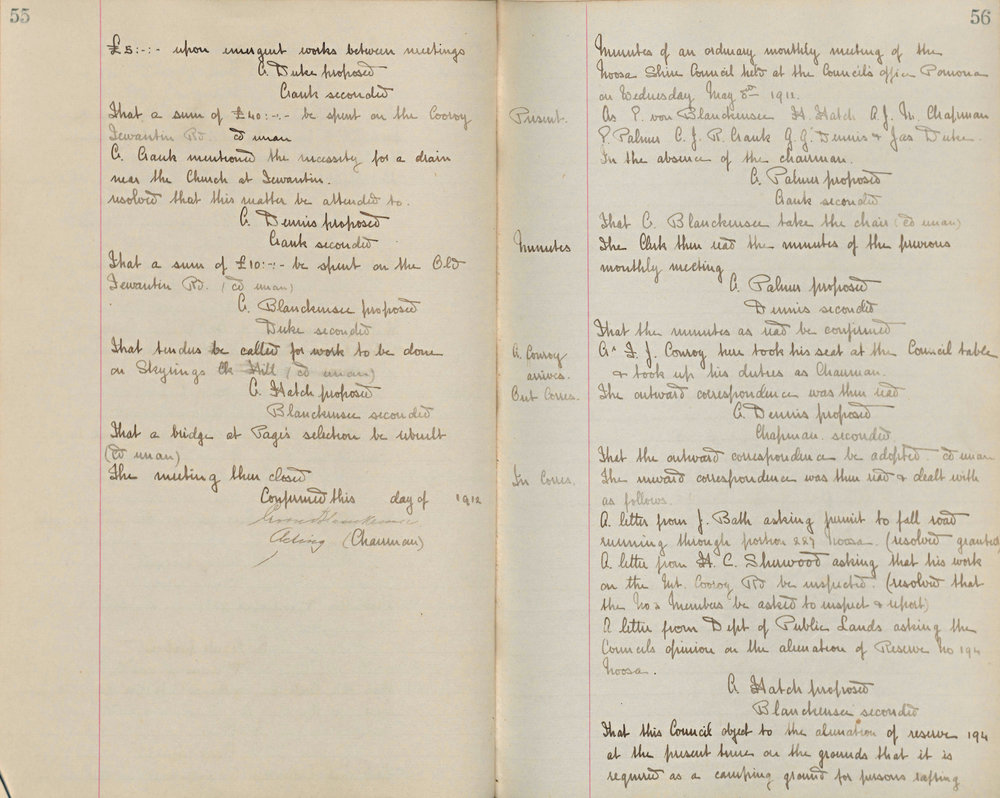 55
£5:-:- upon emergent works between meetings
C. Duke proposed
Crank seconded
That a sum of £40:-:- be spent on the Cooroy
Tewantin Rd. cd unan
C. Crank mentioned the necessity for a drain
near the Church at Tewantin.
resolved that this matter be attended to.
C. Dennis proposed
Crank seconded
That a sum of £10:-:- be spent on the Old
Tewantin Rd. (cd unan)
C. Blanckensee proposed
Duke seconded
That tenders be called for work to be done
on Skyrings Ck Hill (cd unan)
C. Hatch proposed
Blanckensee seconded
That a bridge at Page's selection be rebuilt
(cd unan)
The meeting then closed
Confirmed this day of 1912
Acting (Chairman)
56
Minutes of an ordinary monthly meeting of the
Noosa Shire Council held at the Council's office Pomona
on Wednesday May 8th 1912.
Present. As E. von Blanckensee H. Hatch A. J. N. Chapman
E. Palmer C. J. R. Crank G. G. Dennis & Jas. Duke.
In the absence of the chairman.
C. Palmer proposed
Crank seconded
That C. Blanckensee take the chair (cd unan)
Minutes The Clerk then read the minutes of the previous
monthly meeting
C. Palmer proposed
Dennis seconded
That the minutes as read be confirmed
C. Conroy Cr T. J. Conroy here took his seat at the Council table
arrives. & took up his duties as Chairman.
Out Corres. The outward correspondence was then read
C. Dennis proposed
Chapman seconded
That the outward correspondence be adopted cd unan
In Corres. The inward correspondence was then read & dealt with
as follows.
A letter from J. Bath asking permit to fall road
running through portion 227 Noosa. (resolved granted)
A letter from H. C. Sherwood asking that his work
on the Mt. Cooroy Rd be inspected. (resolved that
the No 2 Members be asked to inspect & report)
A letter from Dept of Public Lands asking the
Councils opinion on the alienation of Reserve No 194
Noosa.
C. Hatch proposed
Blanckensee seconded
That this Council object to the alienation of reserve 194
at the present time on the grounds that it is
required as a camping ground for persons rafting